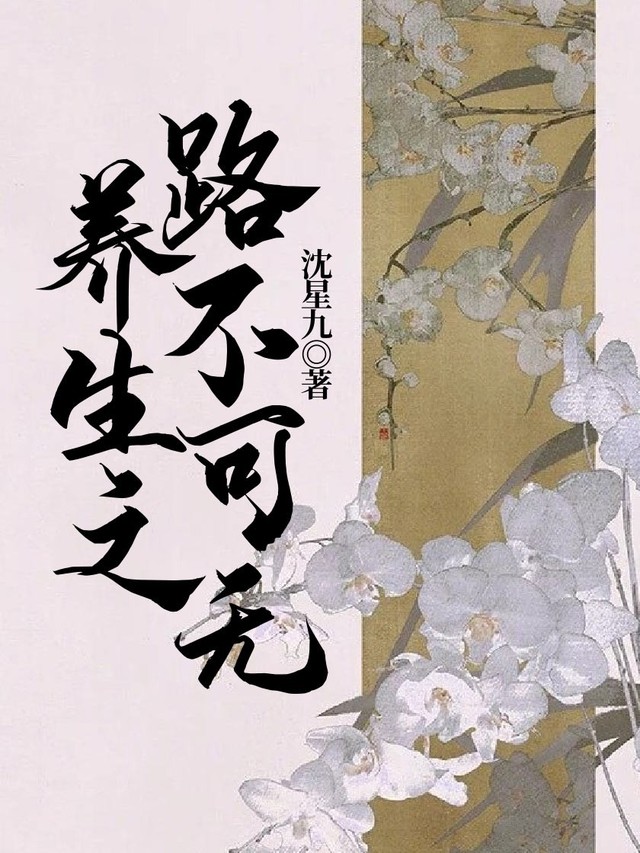 养生之
路不可无
沈星九◎著